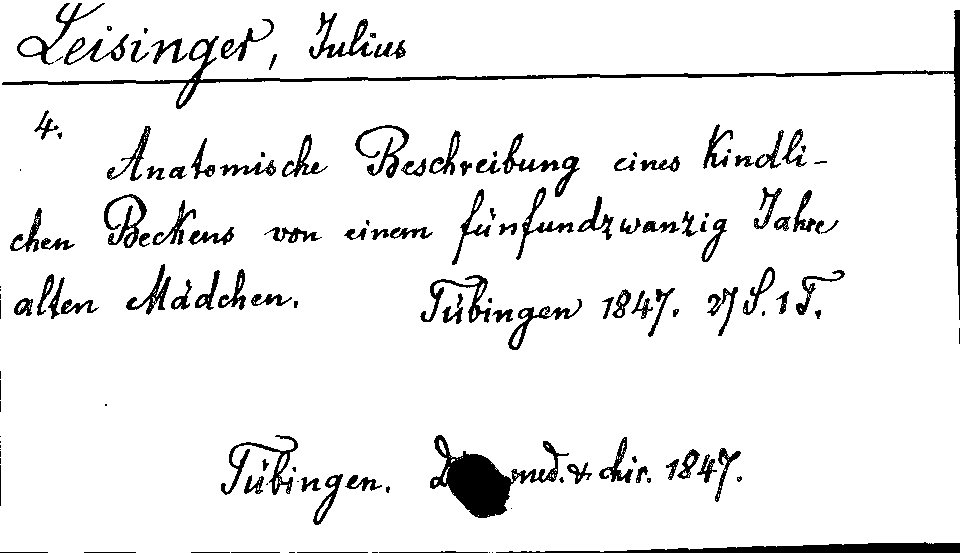 Leisinger, Julius
4.
Anatomische Beschreibung eines Kindli-
chen Beckens von einem fünfundzwanzig Jahre
alten Mädchen. Tübingen 1847. 27 S. 1 T.
Tübingen. med. & chir. 1847.